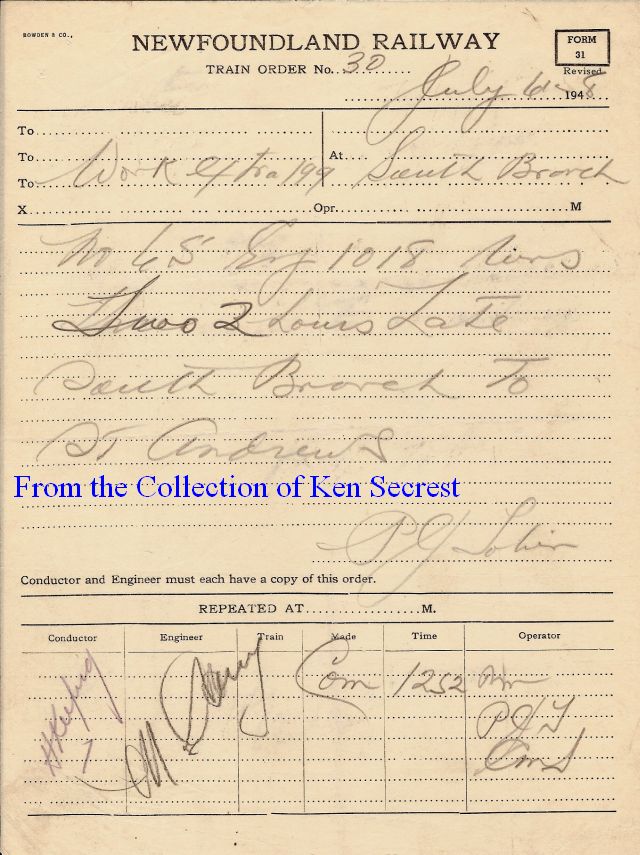 BOWDEN & CO.,
NEWFOUNDLAND RAILWAY
FORM
31
Revised
TRAIN ORDER No. 30
July 6 1948
To
To
At
To Work extra 199 South Branch
X Opr. M
No 65 Eng 1018 Runs
Two 2 hours Late
South Branch To
St Andrews
From the Collection of Ken Secrest
P J Tobin
Conductor and Engineer must each have a copy of this order.
REPEATED AT M.
Conductor Engineer Train Made Time Operator
Com 1252
PJT